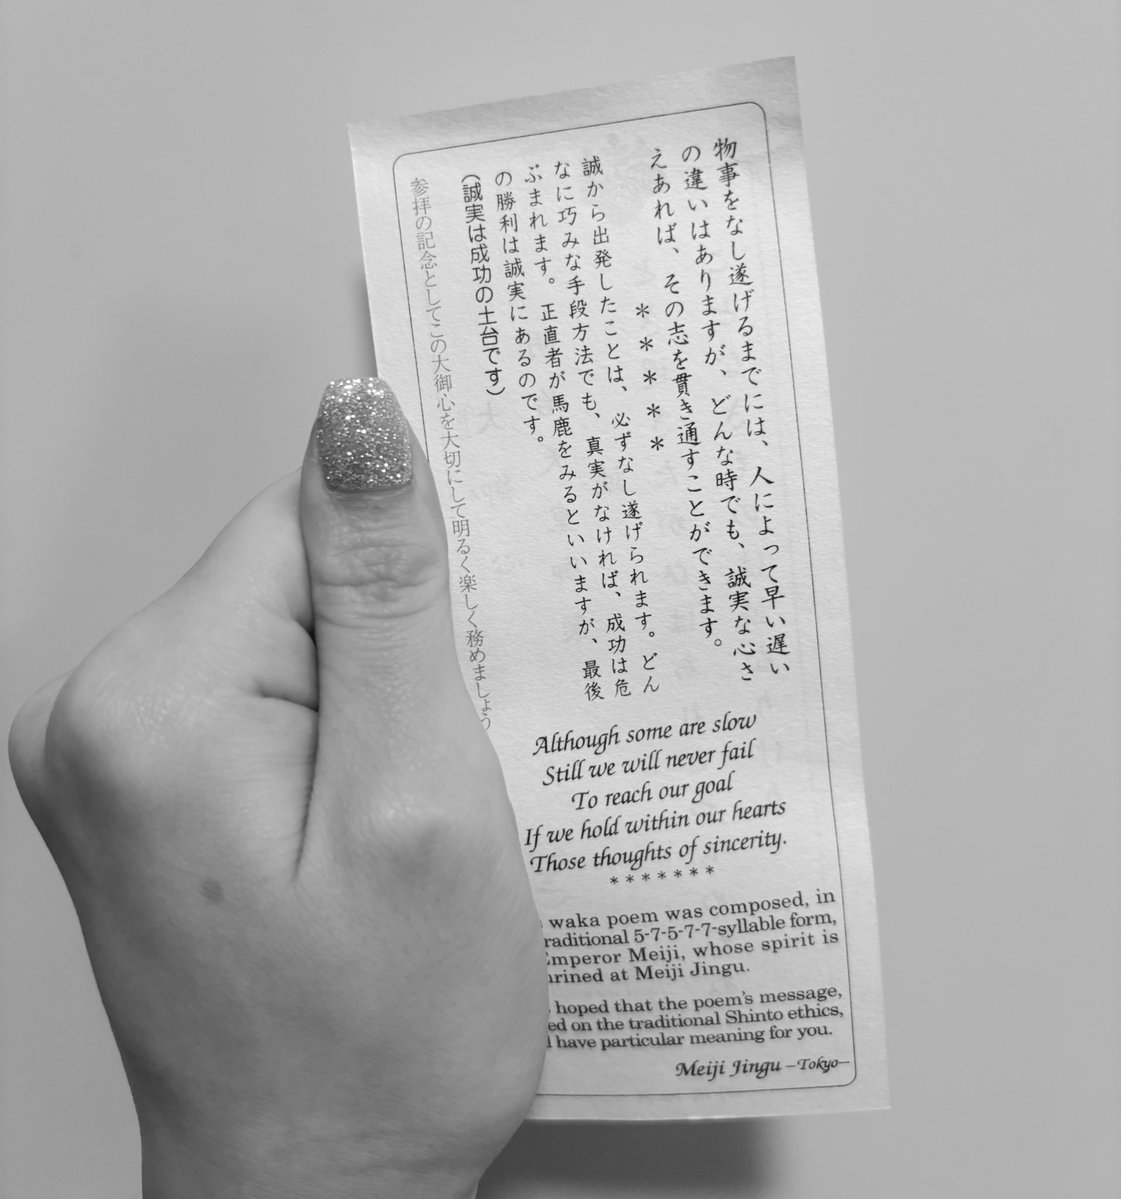 物事をなし遂げるまでには、人によって早い遅い
の違いはありますが、どんな時でも、誠実な心さ
えあれば、その志を貫き通すことができます。
＊＊＊＊＊
誠から出発したことは、必ずなし遂げられます。どん
なに巧みな手段方法でも、真実がなければ、成功は危
ぶまれます。正直者が馬鹿をみるといいますが、最後
の勝利は誠実にあるのです。
（誠実は成功の土台です）
参拝の記念としてこの大御心を大切にして明るく楽しく務めましょう
Although some are slow
Still we will never fail
To reach our goal
If we hold within our hearts
Those thoughts of sincerity.
*******
waka poem was composed, in
raditional 5-7-5-7-7-syllable form,
Emperor Meiji, whose spirit is
hrined at Meiji Jingu.
hoped that the poem's message,
ed on the traditional Shinto ethics,
l have particular meaning for you.
Meiji Jingu –Tokyo–